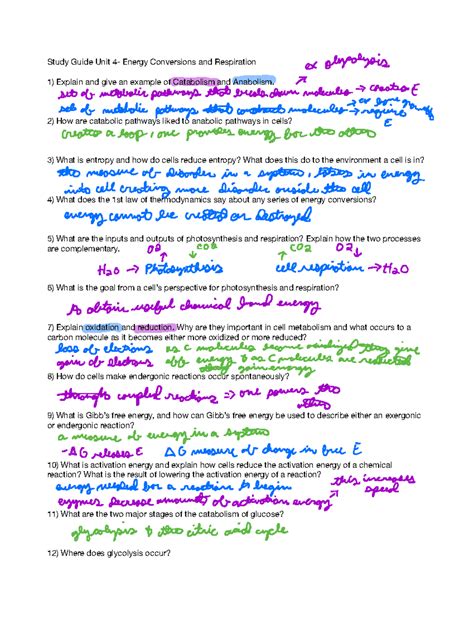 Study Guide Unit 4- Energy Conversions and Respiration
ex glycolysis
1) Explain and give an example of Catabolism and Anabolism.
set of metabolic pathways that breaks down molecules → creates E
set of metabolic pathways that construct molecules → requires E
2) How are catabolic pathways liked to anabolic pathways in cells?
creates a loop, one provides energy for the other
3) What is entropy and how do cells reduce entropy? What does this do to the environment a cell is in?
the measure of disorder in a system, in energy
into cell creating more disorder outside the cell
4) What does the 1st law of thermodynamics say about any series of energy conversions?
energy cannot be created or destroyed
5) What are the inputs and outputs of photosynthesis and respiration? Explain how the two processes
are complementary.
O2 CO2 CO2 O2
H2O → Photosynthesis cell respiration → H2O
6) What is the goal from a cell's perspective for photosynthesis and respiration?
to obtain useful chemical bond energy
7) Explain oxidation and reduction. Why are they important in cell metabolism and what occurs to a
carbon molecule as it becomes either more oxidized or more reduced?
loss of electrons as C molecules become oxidized they give
gain of electrons off energy & as C molecules are reduced
they gain energy
8) How do cells make endergonic reactions occur spontaneously?
through coupled reactions → one powers the
9) What is Gibb's free energy, and how can Gibb's free energy be used to describe either an exergonic
or endergonic reaction?
a measure of energy in a system
-ΔG releases E ΔG measure of change in free E
10) What is activation energy and explain how cells reduce the activation energy of a chemical
reaction? What is the result of lowering the activation energy of a reaction?
energy needed for a reaction to begin this increases
enzymes decrease amount of activation energy speed
11) What are the two major stages of the catabolism of glucose?
glycolysis & the citric acid cycle
12) Where does glycolysis occur?